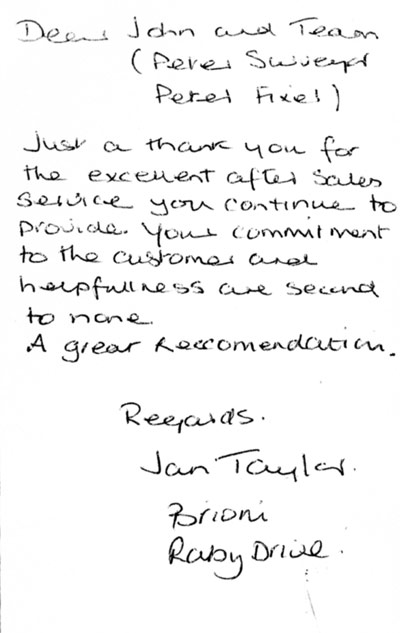 Dear John and Team
(Peter Surveyor
Peter Fixer)
Just a thank you for
the excellent after sales
service you continue to
provide. Your commitment
to the customer and
helpfullness are second
to none.
A great Reccomendation.
Regards.
Jan Taylor.
Brioni
Raby Drive.